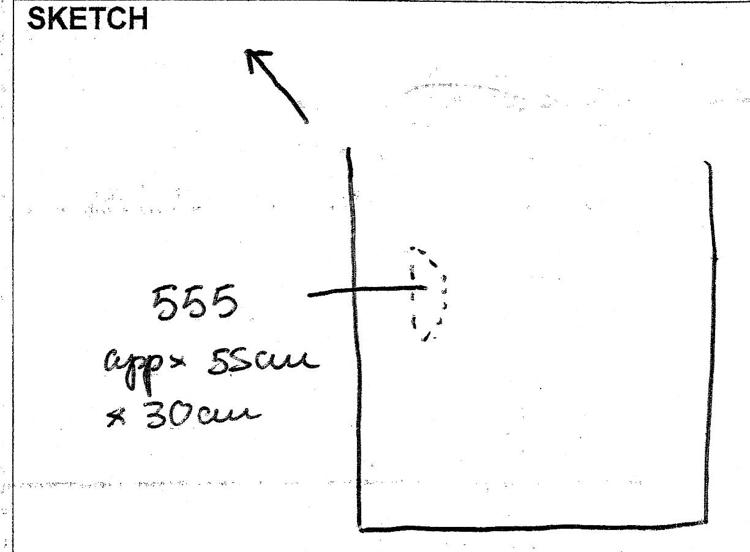 SKETCH
555
appx 55cm
x 30cm